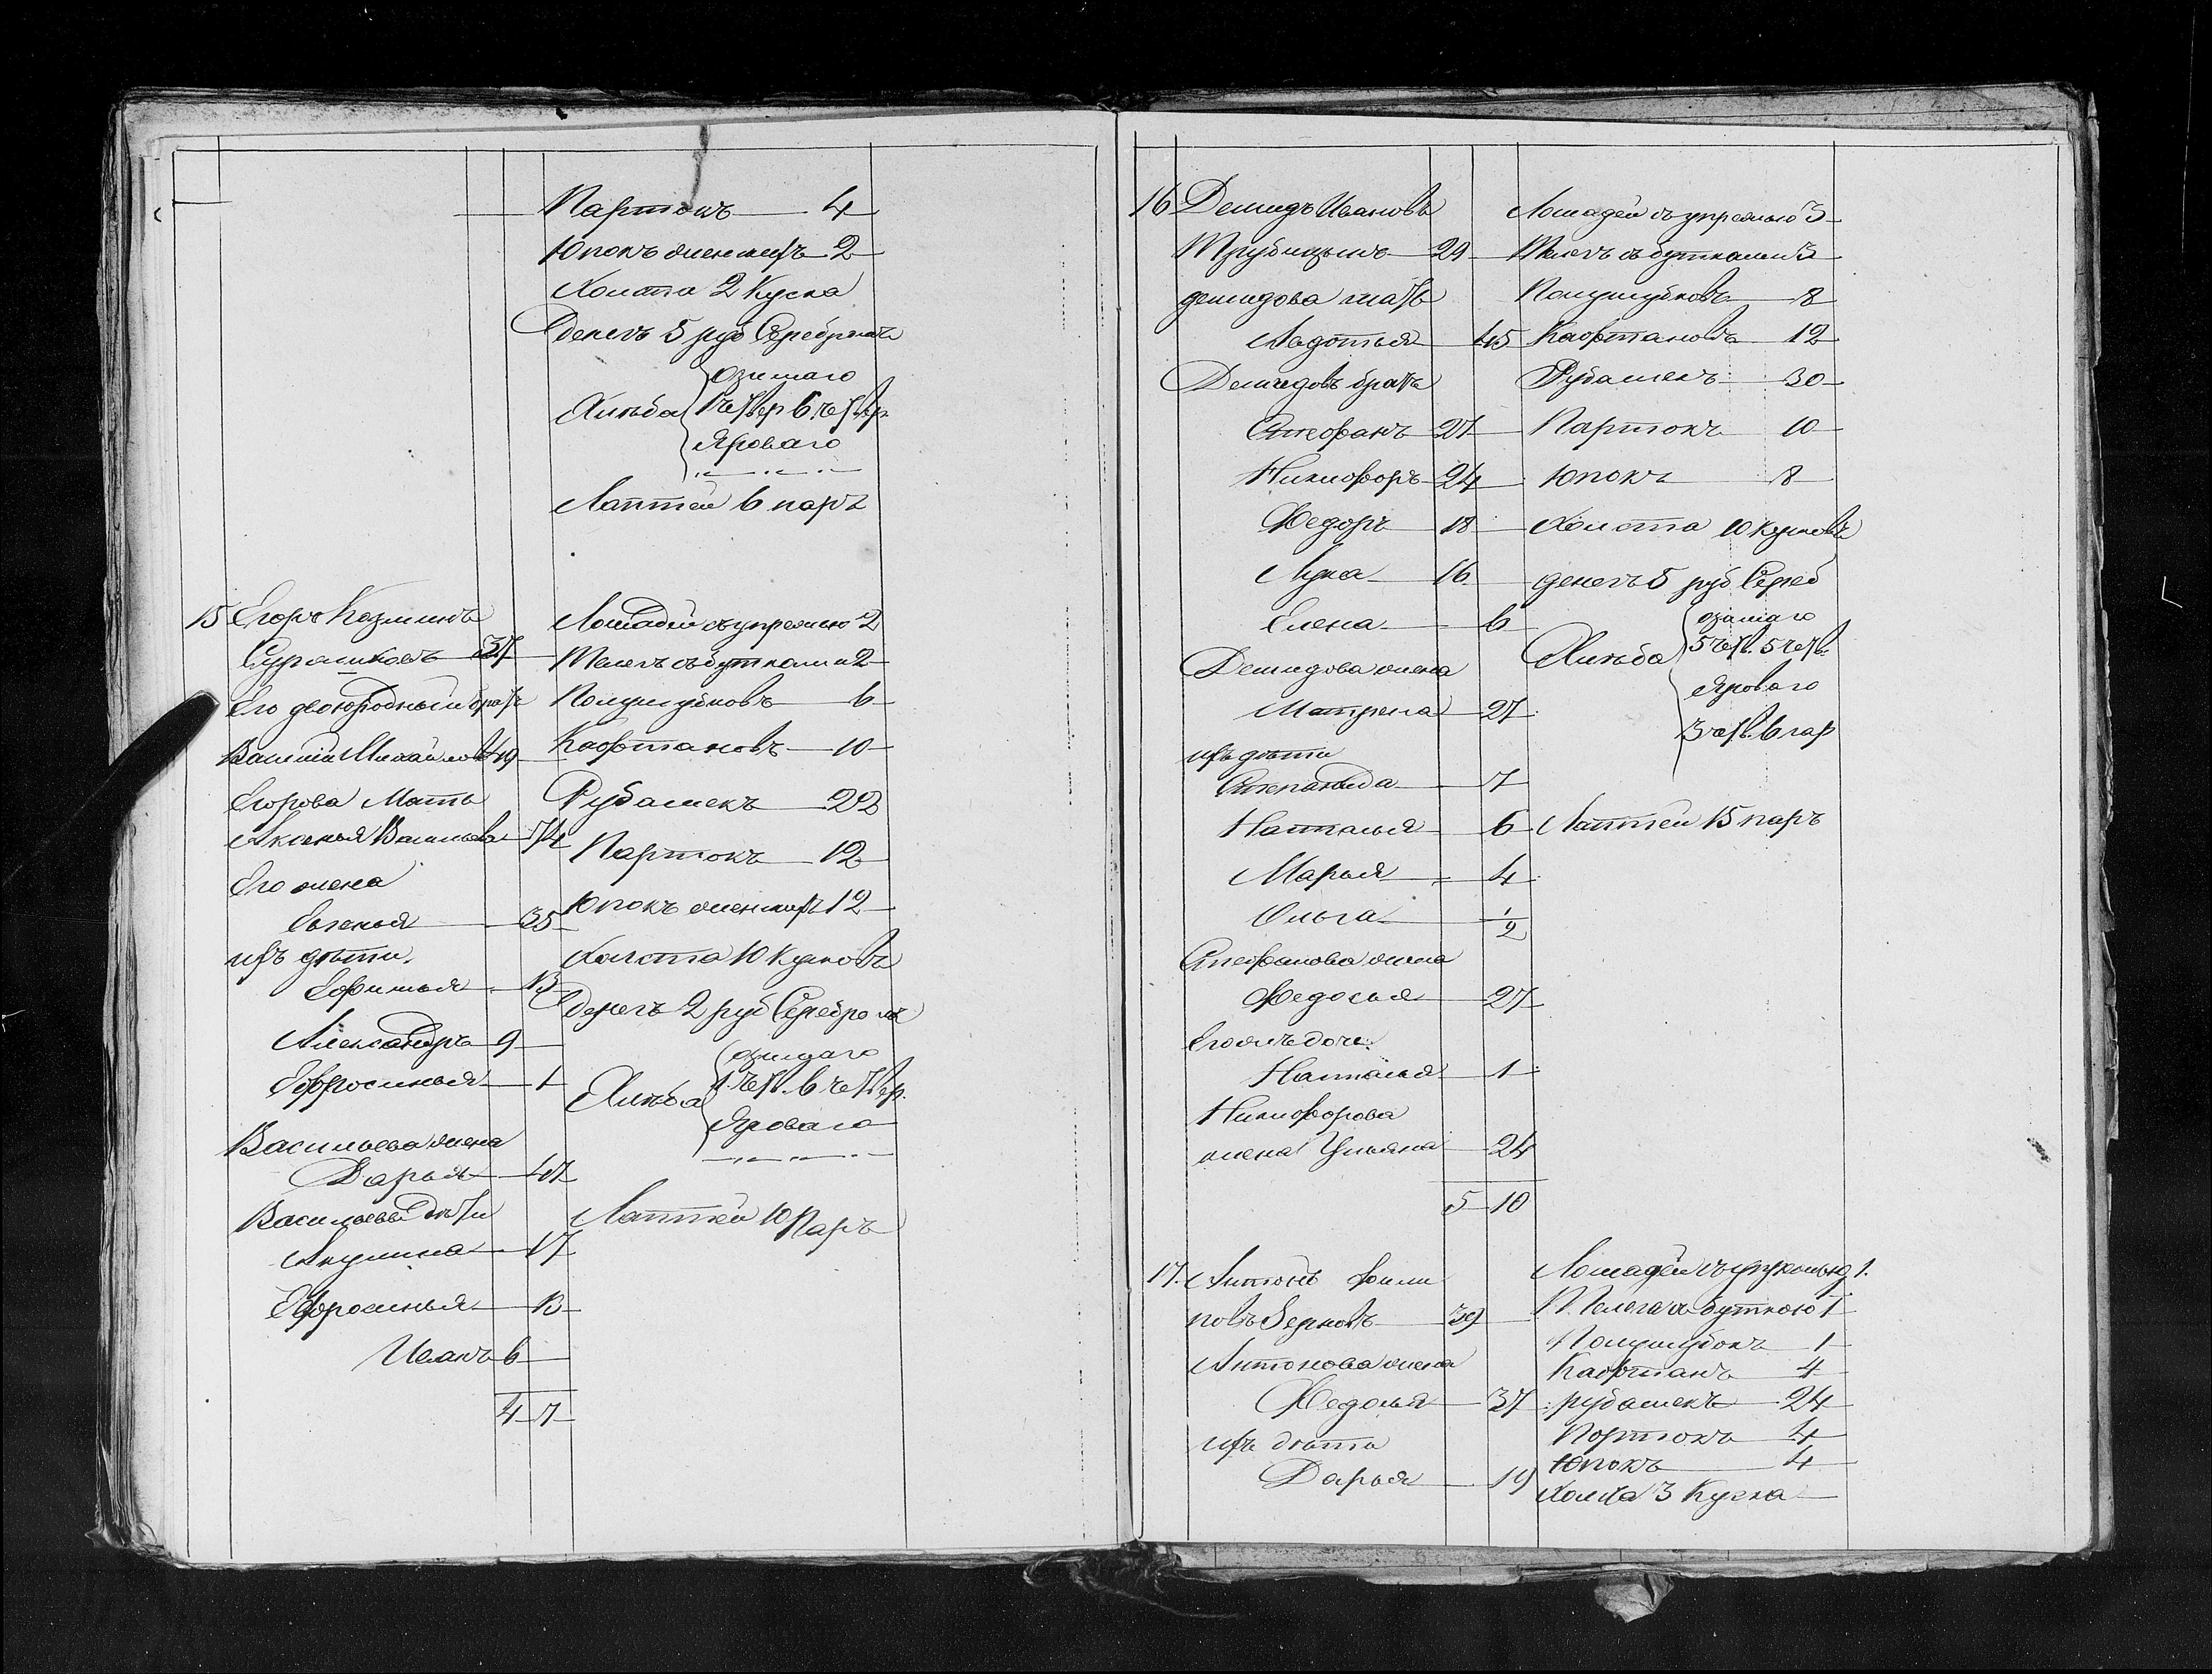 Партокъ 4
Юпокъ женскихъ 2
Холста 2 Куска
Денегъ 5 руб Серебромъ
озимаго
Хлѣба 1 четвер 6 четвер
Яроваго
Лаптей 6 паръ
15 Егоръ Козминъ
37
Его двоюродный братъ
Василий Михайловъ 49
Егорова Мать
Аксинья Васильева 74
Его жена
Евгенья 35
ихъ дѣти.
Ефимья 13
Александръ 9
Ефросинья 1
Васильева жена
Дарья 47
Васильевы Дѣти
Акулина 17
Ефросинья 13
Иванъ 6
4 7
Лошадей съ упряжью 2
Телегъ съ бутками 2
Полушубковъ 6
Кафтановъ 10
Рубашекъ 22
Партокъ 12
Юпокъ женскихъ 12
Холста 10 Кусковъ
Денегъ 2 руб Серебромъ
озимаго
Хлѣба 1 четв. 6 четвер.
Яроваго
Лаптей 10 Паръ
16 Демидъ Ивановъ
Трубицынъ 29
демидова мать
Авдотья 45
Демидовъ братъ
Стефанъ 27
Никифоръ 24
Федоръ 18
Лука 16
Елена 6
Демидова жена
Матрена 27
ихъ дѣти
Степанида 7
Наталья 6
Марья 4
Ольга 1/2
Стефанова жена
Федосья 27
Наталья 1
Никифорова
жена Ульяна 24
5 10
Лошадей съ упряжью 3
Телегъ съ бутками 3
Полушубковъ 8
Кафтановъ 12
Рубашекъ 30
Партокъ 10
Юпокъ 8
Холста 10 кусковъ
денегъ 5 руб Сереб
озимаго
Хлѣба 5 четв. 5 четв.
Яроваго
3 четв. 6 гар
Лаптей 15 паръ
17. Антонъ Фили
повъ Зерновъ 39
Антонова жена
Федосья 37
ихъ дѣти
Дарья 19
Лошадей съ упряжью 1.
Телега съ буткою 1
Полушубокъ 1
Кафтанъ 4
рубашекъ 24
Портокъ 4
Юпокъ 4
Холста 3 Куска